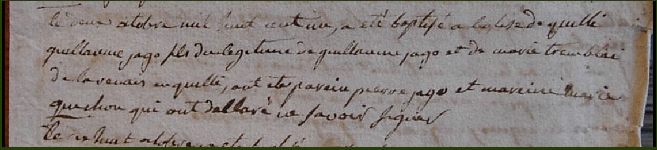 le deux octobre mil huit cent un, a été baptisé a l'eglise de quilli
guillaume jago fils du legitime de guillaume jago et de marie tremblai
de la en quilli, ont été parein pierre jago et mareine marie
quechon qui ont dallaré ne savoir signer
le huit octobre a été